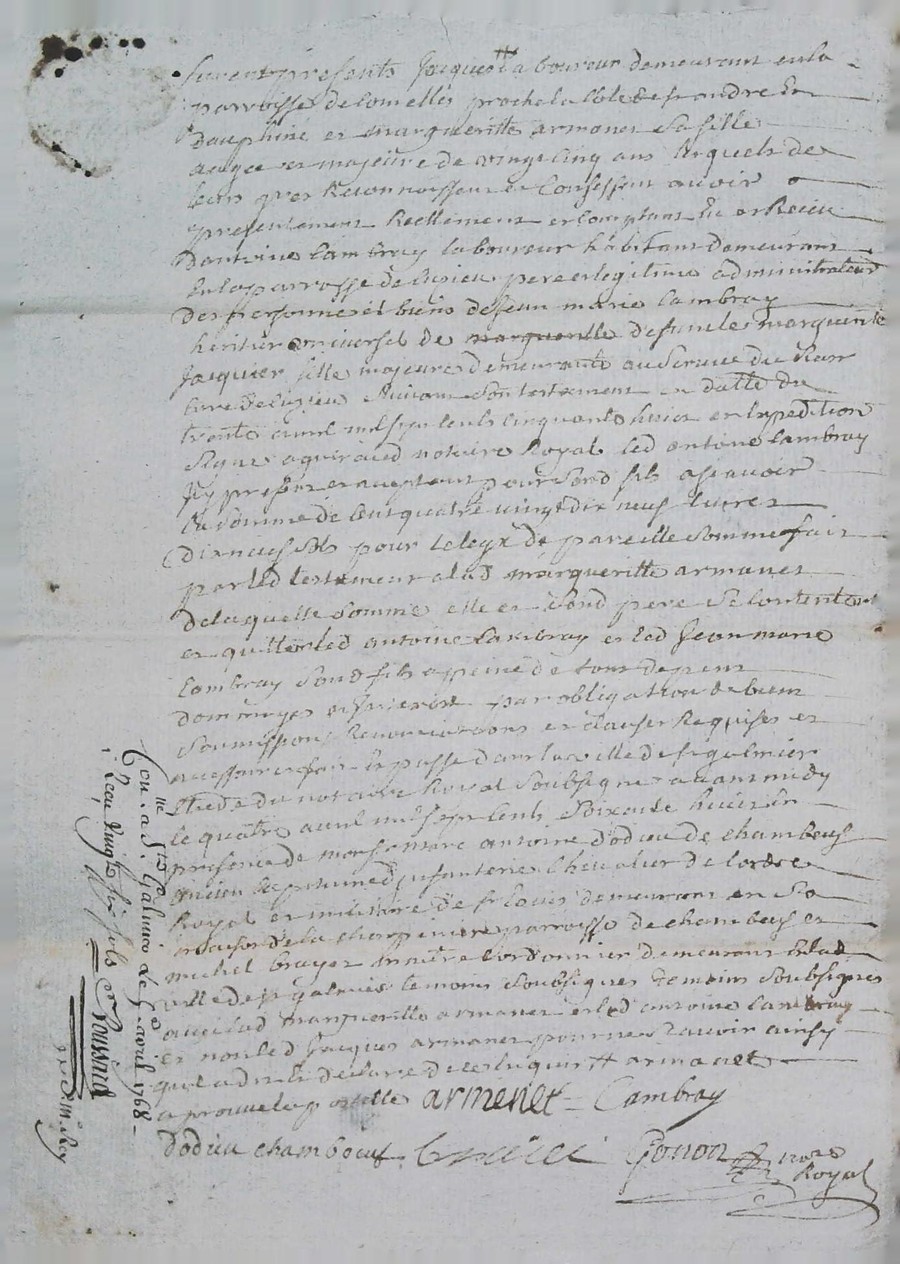 furent présents Jacques ## laboureur demeurant en la
parroisse de Comelles proche la Cote st andre En
Dauphiné et margueritte armanet sa fille
aagée et majeure de vingt cinq ans lesquels de
leurs grez Reconnoissent et Confessent avoir
presentement Reellement et Comptant Eu et Receu
Dantoine Cambray laboureur habitant Demeurant
En la parroisse de pere et legitime administrateur
Des personne et biens de Jean marie Cambray
héritier universel de margueritte defunte marguerite
Jacquier fille majeure demeurante au service du sieur
Curé de suivant son testament en datte du
trente avril mil sept cents cinquante huict en Expedition
signé notaire Royal led antoine Cambray
Icy present et acceptant pour sond fils ascavoir
la somme de Cent quatre vingt dix neuf livres
Dix neuf sols pour le legs de pareille somme fait
par led testament a lad margueritte armanet
De laquelle somme elle et sond pere se contentent
et quittent led antoine Cambray et led Jean marie
Cambray sond fils a peine de tous depens
domages et interest par obligation de biens
soumissions Renonciations et clauses Requises et
necessaires fait et passé dans la ville de st galmier
Etude du notaire Royal soubsigné avant midy
le quatre avril mil sept cents soixante huict En
presence de antoine dodieu de chambeuf
ancien Capitaine d'infanterie Chevalier de l'ordre
Royal et militaire de st louis demeurant en sa
maison de la parroisse de chambeuf et
michel maitre Cordonnier demeurant En lad
ville de st galmier temoins soubsignes
avec lad margueritte armanet et led antoine Cambray
et non led Jacques armanet pour ne scavoir ainsy
qu'il a dit et declaré de ce Requis ## armanet
aprouvé
armenet Cambray
dodieu chambœuf Gonon nore
Royal
Con. a St Galmier le 5 avril 1768
Reçu vingt six sols